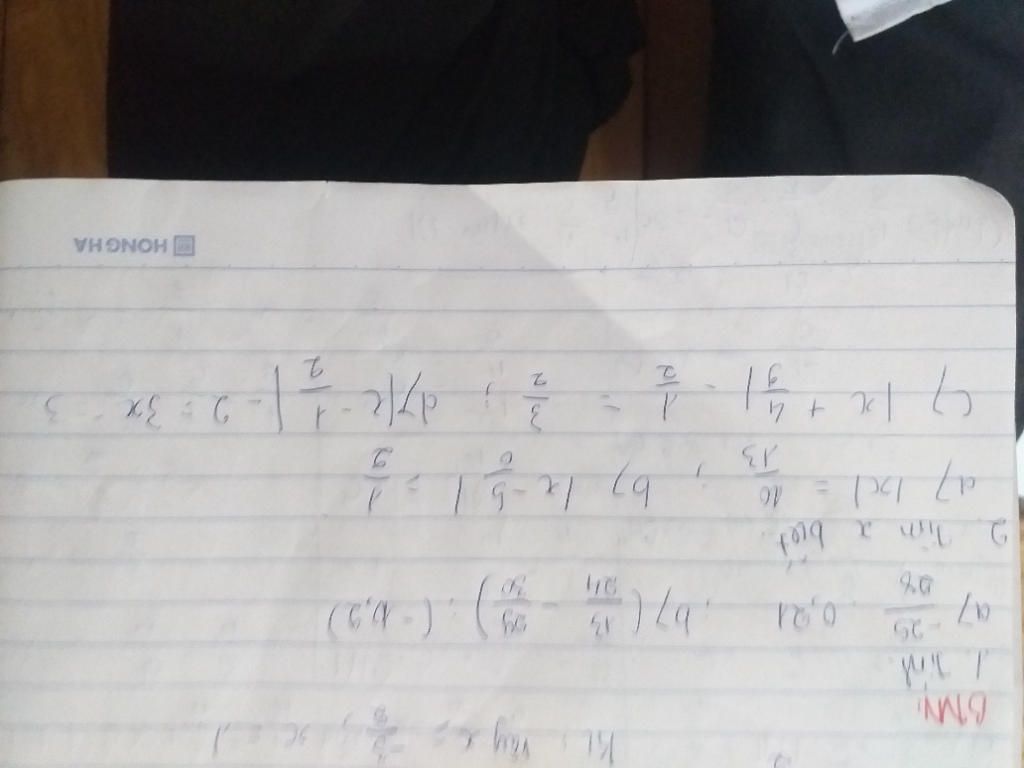 KL: Vậy x = -5/8 ; x = 1.
BTVN:
1. Tính
a) -25/28 . 0,21 ; b) (13/24 - 29/30) : (-0,2)
2. Tìm x biết
a) |x| = 10/13 ; b) |x - 5/6| = 1/9
c) |x + 4/9| - 1/2 = 3/2 ; d) |x - 1/2| - 2 = 3x - 3
HONG HA